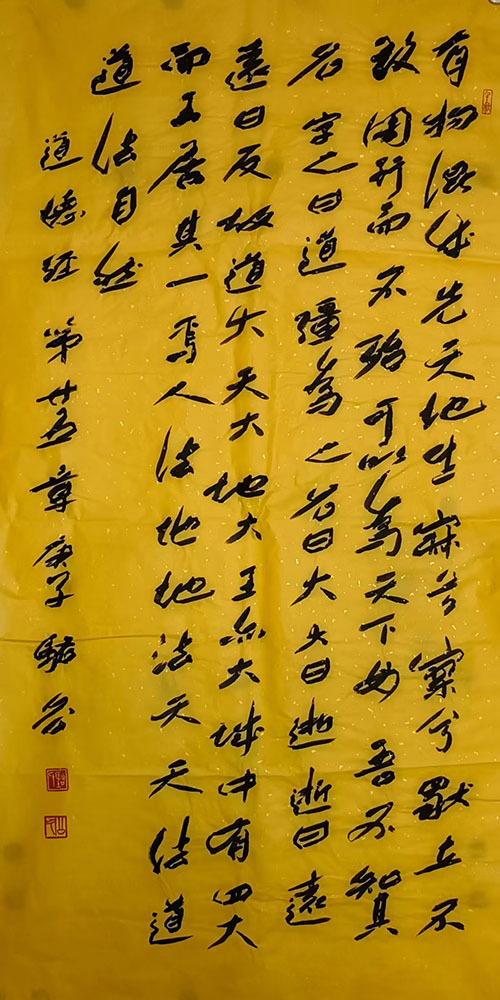 有物混成先天地生寂兮寥兮獨立不
改周行而不殆可以為天下母吾不知其
名字之曰道彊為之名曰大大曰逝逝曰遠
遠曰反故道大天大地大王亦大域中有四大
而王居其一焉人法地地法天天法道
道法自然
道德經第廿五章庚子